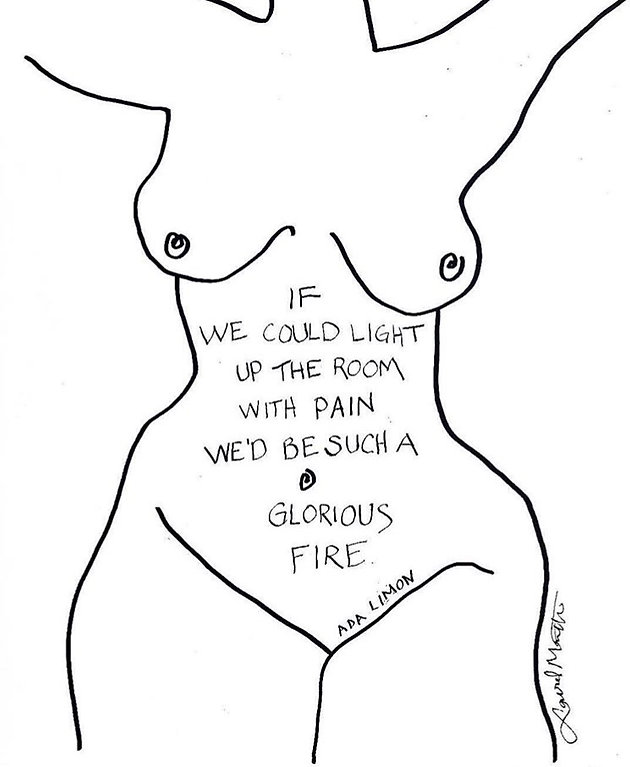 IF
WE COULD LIGHT
UP THE ROOM
WITH PAIN
WE'D BE SUCH A
GLORIOUS
FIRE.
ADA LIMON